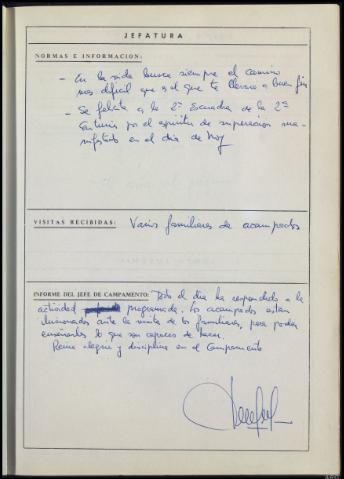 JEFATURA
NORMAS E INFORMACION:
- En la vida busca siempre el camino
mas dificil que es el que te llevara a buen fin
- Se felicita a la 2ª Escuadra de la 2ª
Centuria por el espiritu de superacion ma-
nifestado en el dia de hoy
VISITAS RECIBIDAS: Varios familiares de acampados
INFORME DEL JEFE DE CAMPAMENTO: Todo el dia ha respondido a la
actividad programada. Los acampados estan
ilusionados ante la visita de los familiares para poder
enseñarles lo que son capaces de hacer.
Reina alegria y disciplina en el Campamento